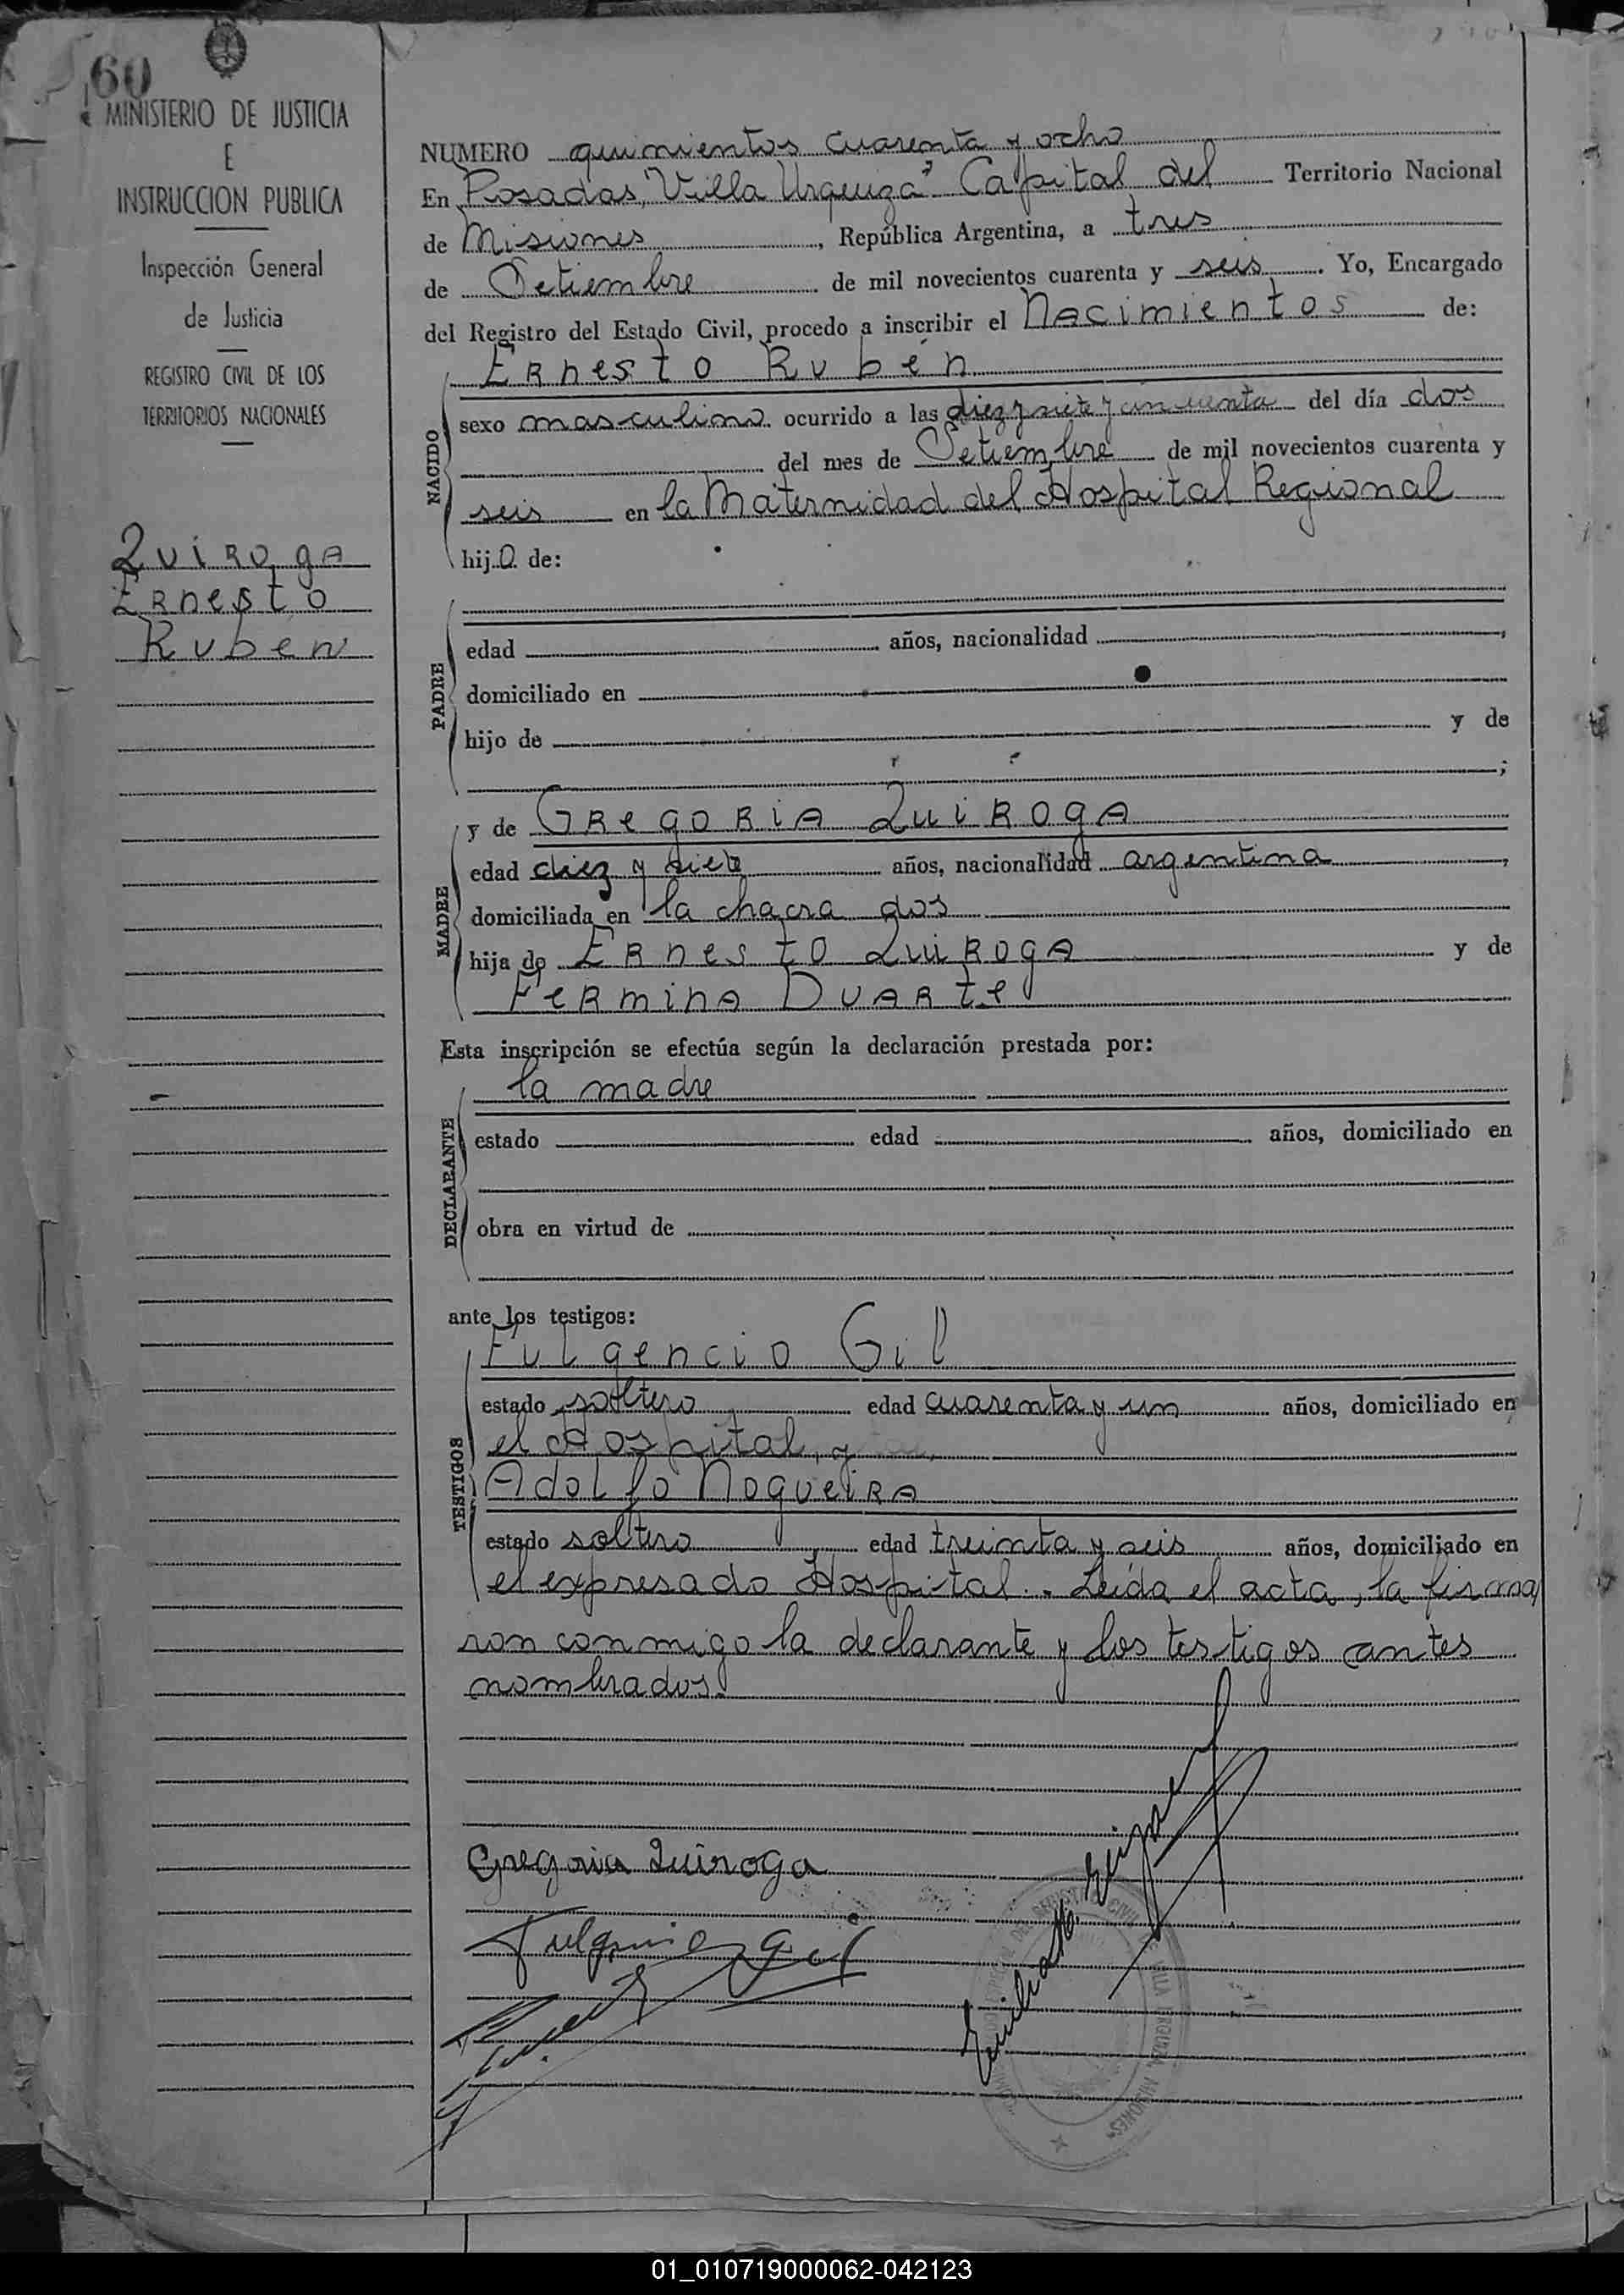 60
MINISTERIO DE JUSTICIA
E
INSTRUCCION PUBLICA
Inspección General
de Justicia
REGISTRO CIVIL DE LOS
TERRITORIOS NACIONALES
Quiroga
Ernesto
Ruben
NUMERO quinientos cuarenta y ocho
En Posadas, "Villa Urquiza" Capital del Territorio Nacional
de Misiones, República Argentina, a tres
de Setiembre de mil novecientos cuarenta y seis. Yo, Encargado
del Registro del Estado Civil, procedo a inscribir el Nacimientos de:
NACIDO
Ernesto Rubén
sexo masculino ocurrido a las diez y siete y cincuenta del día dos
del mes de Setiembre de mil novecientos cuarenta y
seis en la Maternidad del Hospital Regional
hijo de:
PADRE
edad años, nacionalidad ,
domiciliado en
hijo de y de
;
MADRE
y de Gregoria Quiroga
edad diez y siete años, nacionalidad argentina,
domiciliada en la chacra dos
hija de Ernesto Quiroga y de
Fermina Duarte
Esta inscripción se efectúa según la declaración prestada por:
DECLARANTE
la madre
estado edad años, domiciliado en
obra en virtud de
ante los testigos:
TESTIGOS
Fulgencio Gil
estado soltero edad cuarenta y un años, domiciliado en
el Hospital, y
Adolfo Nogueira
estado soltero edad treinta y seis años, domiciliado en
el expresado Hospital. Leída el acta, la firma
ron conmigo la declarante y los testigos antes
nombrados.
Gregoria Quiroga
Fulgencio Gil
01_010719000062-042123